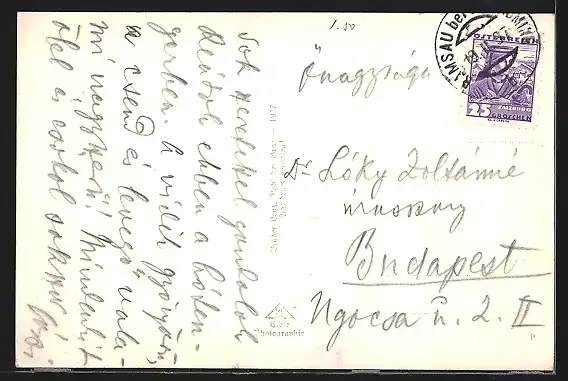 1.50
Sok szeretettel gondolok
Reátok ebben a hóten-
gerben. A vidék gyönyörű,
a csend és levegő vala-
mi nagyszerű! Mindenkit
ölel és csókol sokszor
Őnagysága
Dr Lóky Zoltánné
úrasszony
Budapest
Ngocsa u. 2. II
RAMSAU bei
ÖSTERREICH
25
SALZBURG
GROSCHEN
1927
Echte
Photographie